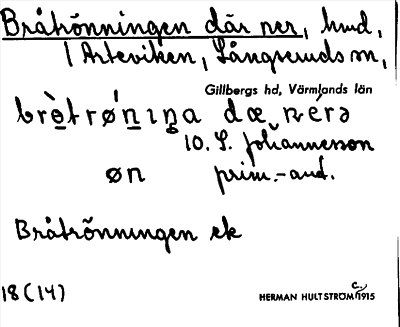 Bråtrönningen där ner, hmd,
i Arteviken, Långseruds sn,
Gillbergs hd, Värmlands län
brètrǿnıŋa dæ néɾə
10. L. Johannesson
øn prim.-aud.
Bråtrönningen ek
18 (14)
HERMAN HULTSTRÖM C. 1915